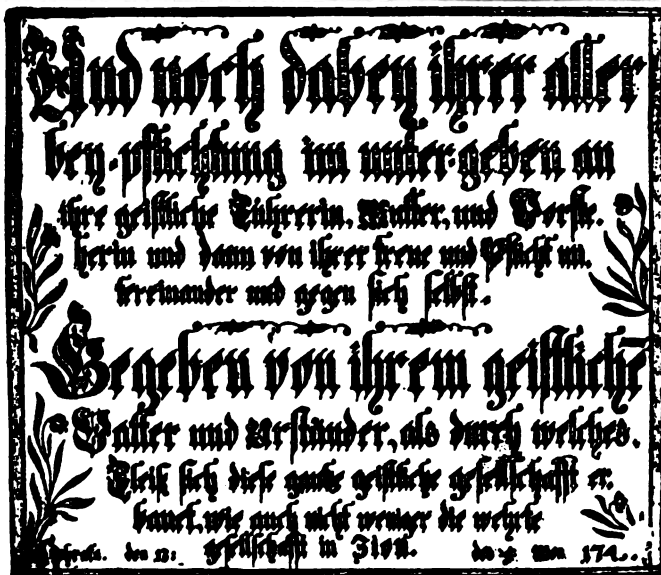 Und noch dabey ihrer aller
bey-pflichtung im unter-geben an
ihre geistliche Führerin, Mutter, und Vorste-
herin und dann von ihrer treue und Pflicht un-
tereinander und gegen sich selbst.
Gegeben von ihrem geistliche
Vatter und Urständer, als durch welches
Fleiß sich diese gantze geistliche gesellschafft er-
bauet, wie auch nicht weniger die wehrte
gesellschafft in Zion.
den 13: den 4 Mon 174